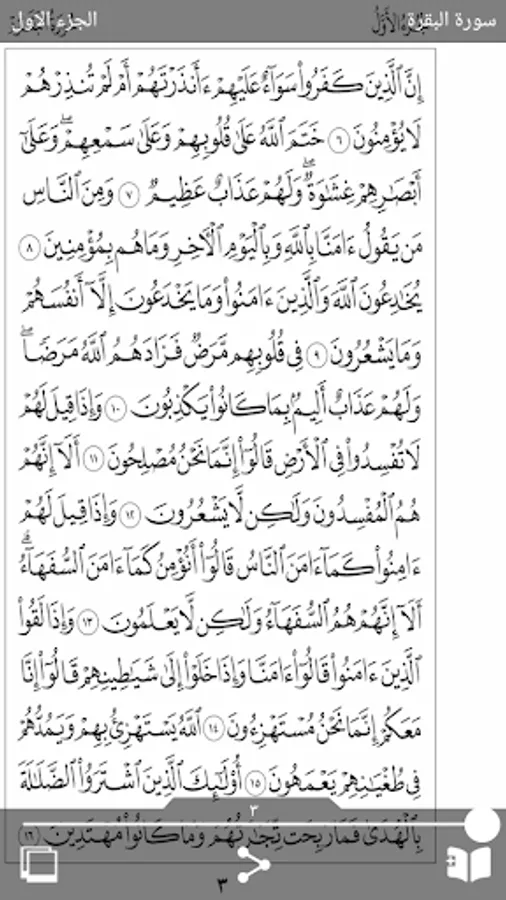 سورة البقرة
الجزء الاول
إِنَّ ٱلَّذِينَ كَفَرُوا۟ سَوَآءٌ عَلَيْهِمْ ءَأَنذَرْتَهُمْ أَمْ لَمْ تُنذِرْهُمْ
لَا يُؤْمِنُونَ ٦ خَتَمَ ٱللَّهُ عَلَىٰ قُلُوبِهِمْ وَعَلَىٰ سَمْعِهِمْ ۖ وَعَلَىٰٓ
أَبْصَـٰرِهِمْ غِشَـٰوَةٌ ۖ وَلَهُمْ عَذَابٌ عَظِيمٌ ٧ وَمِنَ ٱلنَّاسِ
مَن يَقُولُ ءَامَنَّا بِٱللَّهِ وَبِٱلْيَوْمِ ٱلْـَٔاخِرِ وَمَا هُم بِمُؤْمِنِينَ ٨
يُخَـٰدِعُونَ ٱللَّهَ وَٱلَّذِينَ ءَامَنُوا۟ وَمَا يَخْدَعُونَ إِلَّآ أَنفُسَهُمْ
وَمَا يَشْعُرُونَ ٩ فِى قُلُوبِهِم مَّرَضٌ فَزَادَهُمُ ٱللَّهُ مَرَضًا ۖ
وَلَهُمْ عَذَابٌ أَلِيمٌۢ بِمَا كَانُوا۟ يَكْذِبُونَ ١٠ وَإِذَا قِيلَ لَهُمْ
لَا تُفْسِدُوا۟ فِى ٱلْأَرْضِ قَالُوٓا۟ إِنَّمَا نَحْنُ مُصْلِحُونَ ١١ أَلَآ إِنَّهُمْ
هُمُ ٱلْمُفْسِدُونَ وَلَـٰكِن لَّا يَشْعُرُونَ ١٢ وَإِذَا قِيلَ لَهُمْ
ءَامِنُوا۟ كَمَآ ءَامَنَ ٱلنَّاسُ قَالُوٓا۟ أَنُؤْمِنُ كَمَآ ءَامَنَ ٱلسُّفَهَآءُ ۗ
أَلَآ إِنَّهُمْ هُمُ ٱلسُّفَهَآءُ وَلَـٰكِن لَّا يَعْلَمُونَ ١٣ وَإِذَا لَقُوا۟
ٱلَّذِينَ ءَامَنُوا۟ قَالُوٓا۟ ءَامَنَّا وَإِذَا خَلَوْا۟ إِلَىٰ شَيَـٰطِينِهِمْ قَالُوٓا۟ إِنَّا
مَعَكُمْ إِنَّمَا نَحْنُ مُسْتَهْزِءُونَ ١٤ ٱللَّهُ يَسْتَهْزِئُ بِهِمْ وَيَمُدُّهُمْ
فِى طُغْيَـٰنِهِمْ يَعْمَهُونَ ١٥ أُو۟لَـٰٓئِكَ ٱلَّذِينَ ٱشْتَرَوُا۟ ٱلضَّلَـٰلَةَ
٣
بِٱلْهُدَىٰ فَمَا رَبِحَت تِّجَـٰرَتُهُمْ وَمَا كَانُوا۟ مُهْتَدِينَ ١٦
٣